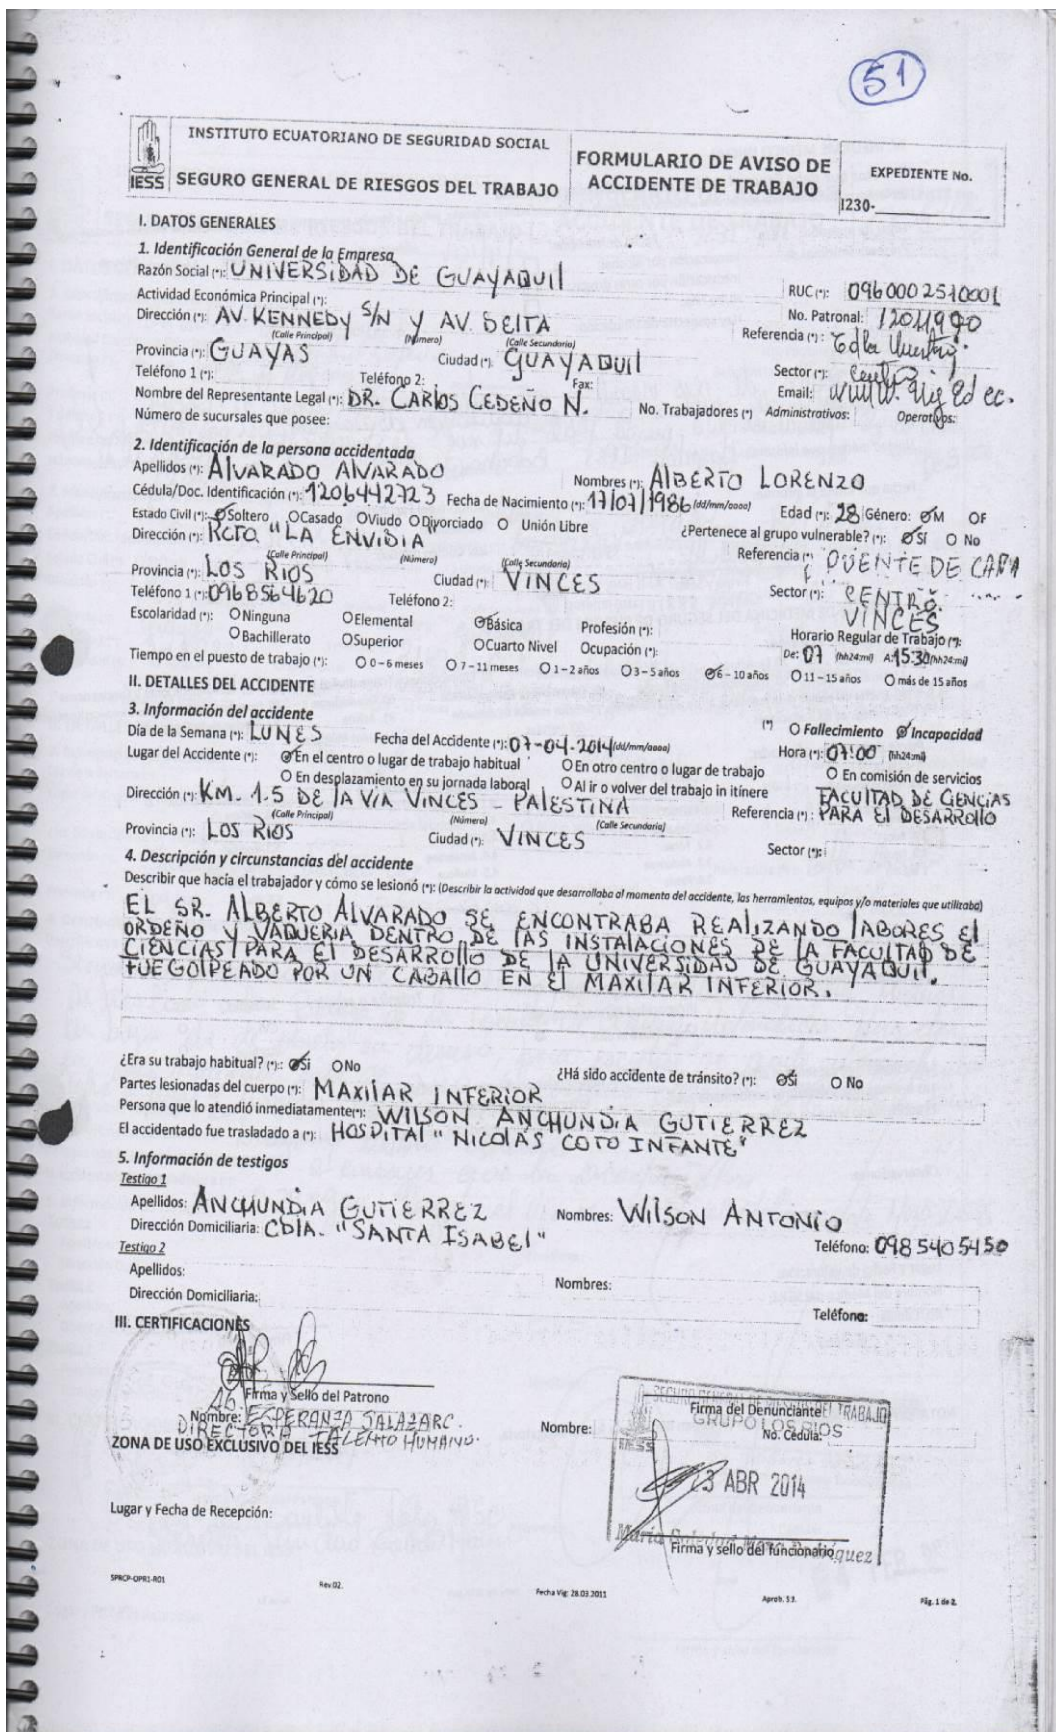 51
INSTITUTO ECUATORIANO DE SEGURIDAD SOCIAL
IESS SEGURO GENERAL DE RIESGOS DEL TRABAJO
FORMULARIO DE AVISO DE ACCIDENTE DE TRABAJO
EXPEDIENTE No.
I230-
I. DATOS GENERALES
1. Identificación General de la Empresa
Razón Social (*): UNIVERSIDAD DE GUAYAQUIL RUC (*): 0960002510001
Actividad Económica Principal (*): No. Patronal:
Dirección (*): AV. KENNEDY S/N Y AV. DELTA Referencia (*):
(Calle Principal) (Número) (Calle Secundaria)
Provincia (*): GUAYAS Ciudad (*): GUAYAQUIL Sector (*): Centro
Teléfono 1 (*): Teléfono 2: Fax: Email:
Nombre del Representante Legal (*): DR. CARLOS CEDEÑO N. No. Trabajadores (*) Administrativos: Operativos:
Número de sucursales que posee:
2. Identificación de la persona accidentada
Apellidos (*): ALVARADO ALVARADO Nombres (*): ALBERTO LORENZO
Cédula/Doc. Identificación (*): 1206442723 Fecha de Nacimiento (*): 17/07/1986 (dd/mm/aaaa) Edad (*): 28 Género: M F
Estado Civil (*): Soltero Casado Viudo Divorciado Unión Libre ¿Pertenece al grupo vulnerable? (*): Sí No
Dirección (*): RCTO. "LA ENVIDIA" Referencia (*): PUENTE DE CAÑA
(Calle Principal) (Número) (Calle Secundaria)
Provincia (*): LOS RIOS Ciudad (*): VINCES Sector (*): CENTRO VINCES
Teléfono 1 (*): 0968564620 Teléfono 2:
Escolaridad (*): Ninguna Elemental Básica Profesión (*): Horario Regular de Trabajo (*):
Bachillerato Superior Cuarto Nivel Ocupación (*): De: 07 (hh24:mi) A: 15:30 (hh24:mi)
Tiempo en el puesto de trabajo (*): 0 – 6 meses 7 – 11 meses 1 – 2 años 3 – 5 años 6 – 10 años 11 – 15 años más de 15 años
II. DETALLES DEL ACCIDENTE
3. Información del accidente
(*) Fallecimiento Incapacidad
Día de la Semana (*): LUNES Fecha del Accidente (*): 07-04-2014 (dd/mm/aaaa) Hora (*): 07:00 (hh24:mi)
Lugar del Accidente (*): En el centro o lugar de trabajo habitual En otro centro o lugar de trabajo En comisión de servicios
En desplazamiento en su jornada laboral Al ir o volver del trabajo in itínere
Dirección (*): KM. 1.5 DE LA VIA VINCES - PALESTINA Referencia (*): FACULTAD DE CIENCIAS PARA EL DESARROLLO
(Calle Principal) (Número) (Calle Secundaria)
Provincia (*): LOS RIOS Ciudad (*): VINCES Sector (*):
4. Descripción y circunstancias del accidente
Describir que hacía el trabajador y cómo se lesionó (*): (Describir la actividad que desarrollaba al momento del accidente, las herramientas, equipos y/o materiales que utilizaba)
EL SR. ALBERTO ALVARADO SE ENCONTRABA REALIZANDO LABORES El
ORDEÑO Y VAQUERIA DENTRO DE LAS INSTALACIONES DE LA FACULTAD DE
CIENCIAS PARA EL DESARROLLO DE LA UNIVERSIDAD DE GUAYAQUIL.
FUE GOLPEADO POR UN CABALLO EN EL MAXILAR INFERIOR.
¿Era su trabajo habitual? (*): Sí No ¿Há sido accidente de tránsito? (*): Sí No
Partes lesionadas del cuerpo (*): MAXILAR INFERIOR
Persona que lo atendió inmediatamente(*): WILSON ANCHUNDIA GUTIERREZ
El accidentado fue trasladado a (*): HOSPITAL "NICOLÁS COTO INFANTE"
5. Información de testigos
Testigo 1
Apellidos: ANCHUNDIA GUTIERREZ Nombres: WILSON ANTONIO
Dirección Domiciliaria: CDLA. "SANTA ISABEL" Teléfono: 0985405450
Testigo 2
Apellidos: Nombres:
Dirección Domiciliaria: Teléfono:
III. CERTIFICACIONES
Firma y Sello del Patrono
Nombre: ESPERANZA SALAZAR C.
DIRECTORA TALENTO HUMANO.
Firma del Denunciante
Nombre: No. Cédula:
SEGURO GENERAL DE RIESGOS DEL TRABAJO
GRUPO LOS RIOS
IESS
ABR 2014
ZONA DE USO EXCLUSIVO DEL IESS
Lugar y Fecha de Recepción:
Firma y sello del funcionario
SPRCP-OPR1-R01 Rev.02. Fecha Vig: 28.03.2011 Aprob. S.S. Pág. 1 de 2.